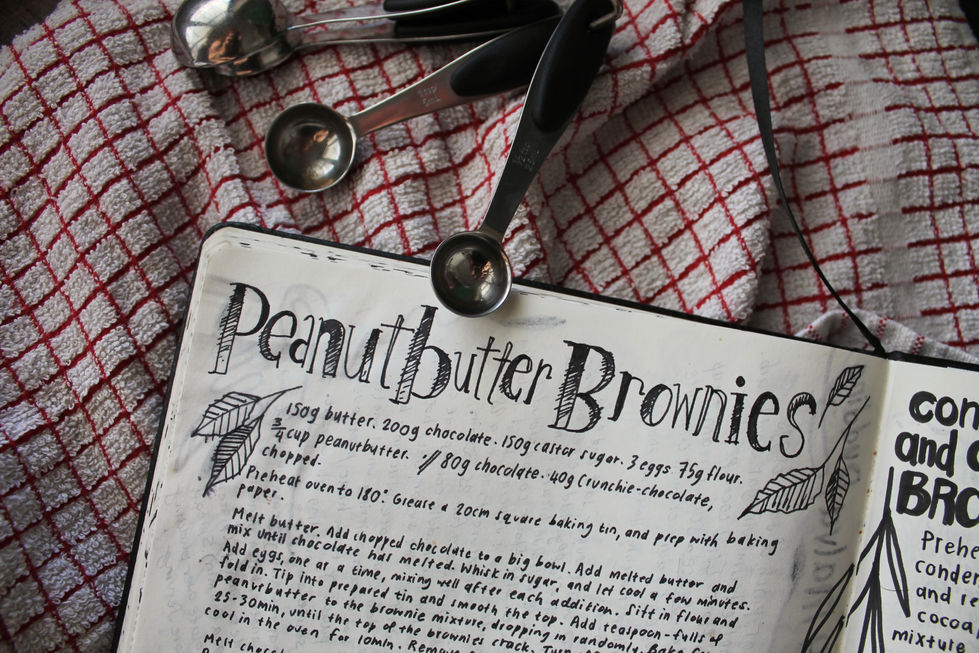 Peanutbutter Brownies
150g butter. 200g chocolate. 150g castor sugar. 3 eggs 75g flour.
3/4 cup peanutbutter. // 80g chocolate. 40g Crunchie-chocolate,
chopped.
Preheat oven to 180°. Grease a 20cm square baking tin, and prep with baking
paper.
Melt butter. Add chopped chocolate to a big bowl. Add melted butter and
mix until chocolate has melted. Whisk in sugar, and let cool a few minutes.
Add eggs, one at a time, mixing well after each addition. Sift in flour and
fold in. Tip into prepared tin and smooth the top. Add teaspoon-fulls of
peanutbutter to the brownie mixture, dropping in randomly. Bake for
25-30min, until the top of the brownies crack. Turn
cool in the oven for 10min. Remove
Melt
and
Prehe
conden
and re
cocoa
mixture